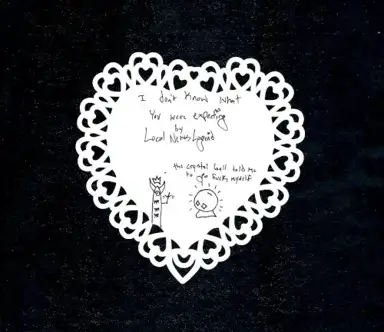 I don't know what
You were expecting
by
Local
the crystal ball told me
to go fuck myself